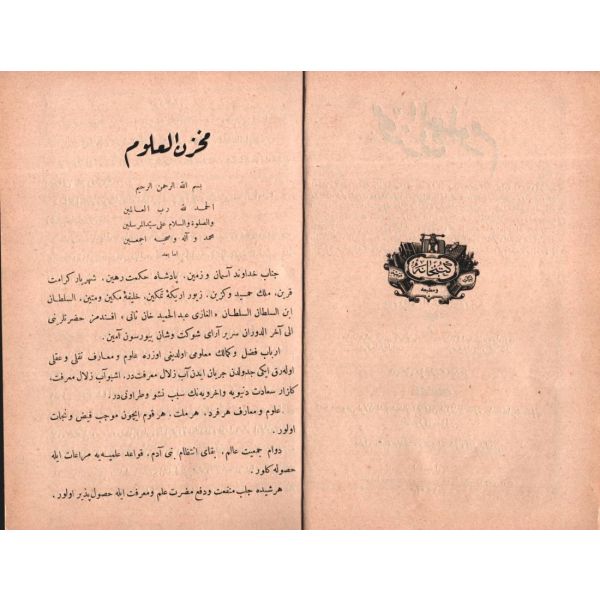 كتبخانهٔ
و مطبعه
مخزن العلوم
بسم الله الرحمن الرحيم
الحمد لله رب العالمين
والصلوة والسلام على سيد المرسلين
محمد و آله و صحبه اجمعين
اما بعد :
جناب خداوند آسمان و زمين ، پادشاه حكمت رهين ، شهريار كرامت
قرين ، ملك حميد وكزين ، زيور اريكهٔ تمكين ، خليفهٔ مكين ومتين ، السلطان
ابن السلطان السلطان « الغازى عبد الحميد خان ثانى » افندمز حضرتلرينى
الى آخر الدوران سرير آراى شوكت وشان بيورسون آمين .
ارباب فضل و كمالك معلومى اولديغى اوزره علوم و معارف نقلى و عقلى
اوله رق ايكى جدولدن جريان ايدن آب زلال معرفت در ، اشبو آب زلال معرفت ،
كلزار سعادت دنيويه و اخرويه نك سبب نشو و طراوتى در .
علوم و معارف هر فرد ، هر ملت ، هر قوم ايچون موجب فيض و نجات
اولور .
دوام جمعيت عالم ، بقاى انتظام بنى آدم ، قواعد علميه يه مراعات ايله
حصوله كلور .
هر شيده جلب منفعت ودفع مضرت علم و معرفت ايله حصول پذير اولور .